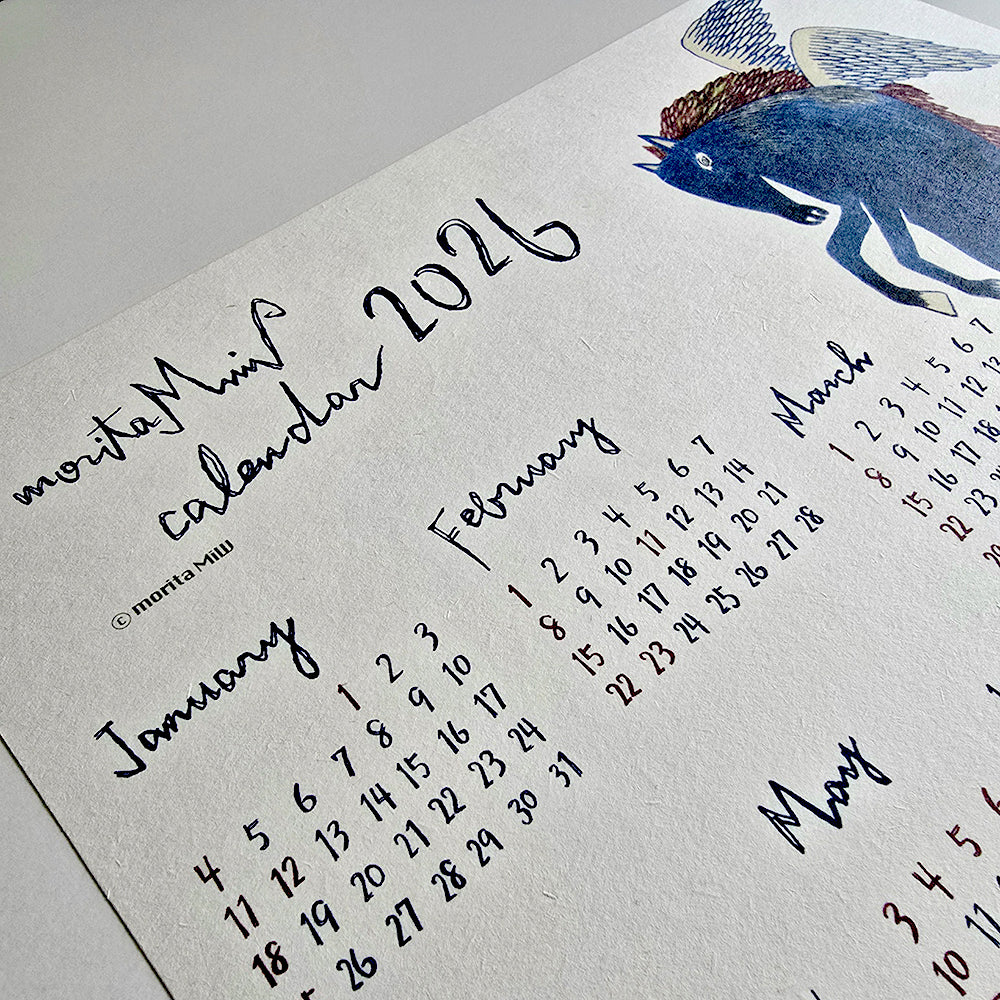 moritaMiW
calendar 2026
© morita MiW
January
1 2 3
4 5 6 7 8 9 10
11 12 13 14 15 16 17
18 19 20 21 22 23 24
26 27 28 29 30 31
February
1 2 3 4 5 6 7
8 9 10 11 12 13 14
15 16 17 18 19 20 21
22 23 24 25 26 27 28
March
1 2 3 4 5 6 7
8 9 10 11 12
15 16 17 18
22 23
May
3 4 5
10 11